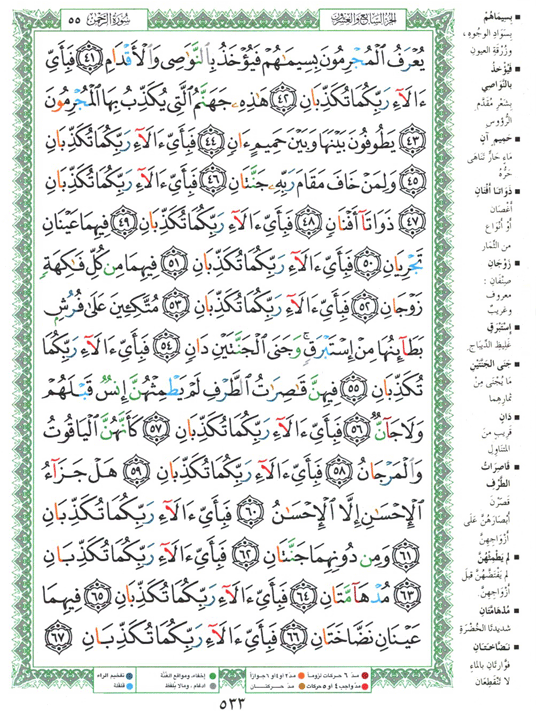 الجزء السابع والعشرون
سورة الرحمن ٥٥
يُعْرَفُ ٱلْمُجْرِمُونَ بِسِيمَـٰهُمْ فَيُؤْخَذُ بِٱلنَّوَٰصِى وَٱلْأَقْدَامِ ٤١ فَبِأَىِّ
ءَالَآءِ رَبِّكُمَا تُكَذِّبَانِ ٤٢ هَـٰذِهِۦ جَهَنَّمُ ٱلَّتِى يُكَذِّبُ بِهَا ٱلْمُجْرِمُونَ
٤٣ يَطُوفُونَ بَيْنَهَا وَبَيْنَ حَمِيمٍ ءَانٍ ٤٤ فَبِأَىِّ ءَالَآءِ رَبِّكُمَا تُكَذِّبَانِ
٤٥ وَلِمَنْ خَافَ مَقَامَ رَبِّهِۦ جَنَّتَانِ ٤٦ فَبِأَىِّ ءَالَآءِ رَبِّكُمَا تُكَذِّبَانِ
٤٧ ذَوَاتَآ أَفْنَانٍ ٤٨ فَبِأَىِّ ءَالَآءِ رَبِّكُمَا تُكَذِّبَانِ ٤٩ فِيهِمَا عَيْنَانِ
تَجْرِيَانِ ٥٠ فَبِأَىِّ ءَالَآءِ رَبِّكُمَا تُكَذِّبَانِ ٥١ فِيهِمَا مِن كُلِّ فَـٰكِهَةٍ
زَوْجَانِ ٥٢ فَبِأَىِّ ءَالَآءِ رَبِّكُمَا تُكَذِّبَانِ ٥٣ مُتَّكِـِٔينَ عَلَىٰ فُرُشٍۭ
بَطَآئِنُهَا مِنْ إِسْتَبْرَقٍ ۚ وَجَنَى ٱلْجَنَّتَيْنِ دَانٍ ٥٤ فَبِأَىِّ ءَالَآءِ رَبِّكُمَا
تُكَذِّبَانِ ٥٥ فِيهِنَّ قَـٰصِرَٰتُ ٱلطَّرْفِ لَمْ يَطْمِثْهُنَّ إِنسٌ قَبْلَهُمْ
وَلَا جَآنٌّ ٥٦ فَبِأَىِّ ءَالَآءِ رَبِّكُمَا تُكَذِّبَانِ ٥٧ كَأَنَّهُنَّ ٱلْيَاقُوتُ
وَٱلْمَرْجَانُ ٥٨ فَبِأَىِّ ءَالَآءِ رَبِّكُمَا تُكَذِّبَانِ ٥٩ هَلْ جَزَآءُ
ٱلْإِحْسَـٰنِ إِلَّا ٱلْإِحْسَـٰنُ ٦٠ فَبِأَىِّ ءَالَآءِ رَبِّكُمَا تُكَذِّبَانِ
٦١ وَمِن دُونِهِمَا جَنَّتَانِ ٦٢ فَبِأَىِّ ءَالَآءِ رَبِّكُمَا تُكَذِّبَانِ
٦٣ مُدْهَآمَّتَانِ ٦٤ فَبِأَىِّ ءَالَآءِ رَبِّكُمَا تُكَذِّبَانِ ٦٥ فِيهِمَا
عَيْنَانِ نَضَّاخَتَانِ ٦٦ فَبِأَىِّ ءَالَآءِ رَبِّكُمَا تُكَذِّبَانِ ٦٧
بِسِيمَاهُمْ
بِسَوَادِ الوُجُوهِ،
وزُرْقَةِ العيونِ
فَيُؤْخَذُ
بالنَّوَاصِي
بِشَعْرِ مُقَدَّمِ
الرُّؤوسِ
حَمِيمٍ آنٍ
مَاءٍ حَارٍّ تَنَاهَى
حَرُّهُ
ذَوَاتَا أَفْنَانٍ
أَغْصَانٍ
أَوْ أَنْوَاعٍ
من الثِّمَارِ
زَوْجَانِ
صِنْفَانِ:
معروف
وغريب
إِسْتَبْرَقٍ
غَلِيظِ الدِّيبَاجِ
جَنَى الجَنَّتَيْنِ
مَا يُجْنَى مِنْ
ثمارهما
دَانٍ
قريب من
المتناول
قَاصِرَاتُ
الطَّرْفِ
قَصَرْنَ
أَبْصَارَهُنَّ عَلَى
أَزْوَاجِهِنَّ
لَمْ يَطْمِثْهُنَّ
لم يَفْتَضَّهُنَّ قبل
أَزْوَاجِهِنَّ
مُدْهَامَّتَانِ
شَدِيدَتَا الخُضْرَةِ
نَضَّاخَتَانِ
فَوَّارَتَانِ بالماءِ
لا تَنْقَطِعَانِ
مدّ ٦ حركات لزوماً
مدّ ٢ أو ٤ أو ٦ جوازاً
إخفاء، ومواقع الغُنَّة
تفخيم الراء
مدّ واجب ٤ أو ٥ حركات
مدّ حركتان
ادغام، وما لا يُلفظ
قلقلة
٥٣٣